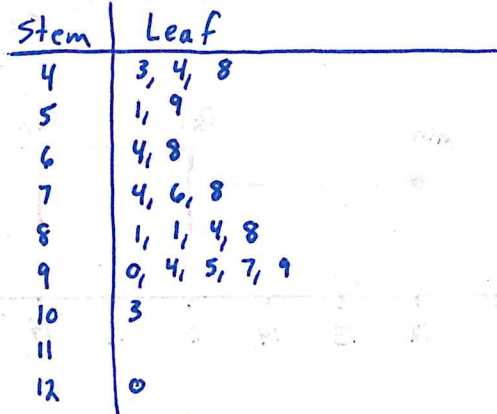 Stem Leaf
4 3, 4, 8
5 1, 9
6 4, 8
7 4, 6, 8
8 1, 1, 4, 8
9 0, 4, 5, 7, 9
10 3
11
12 0